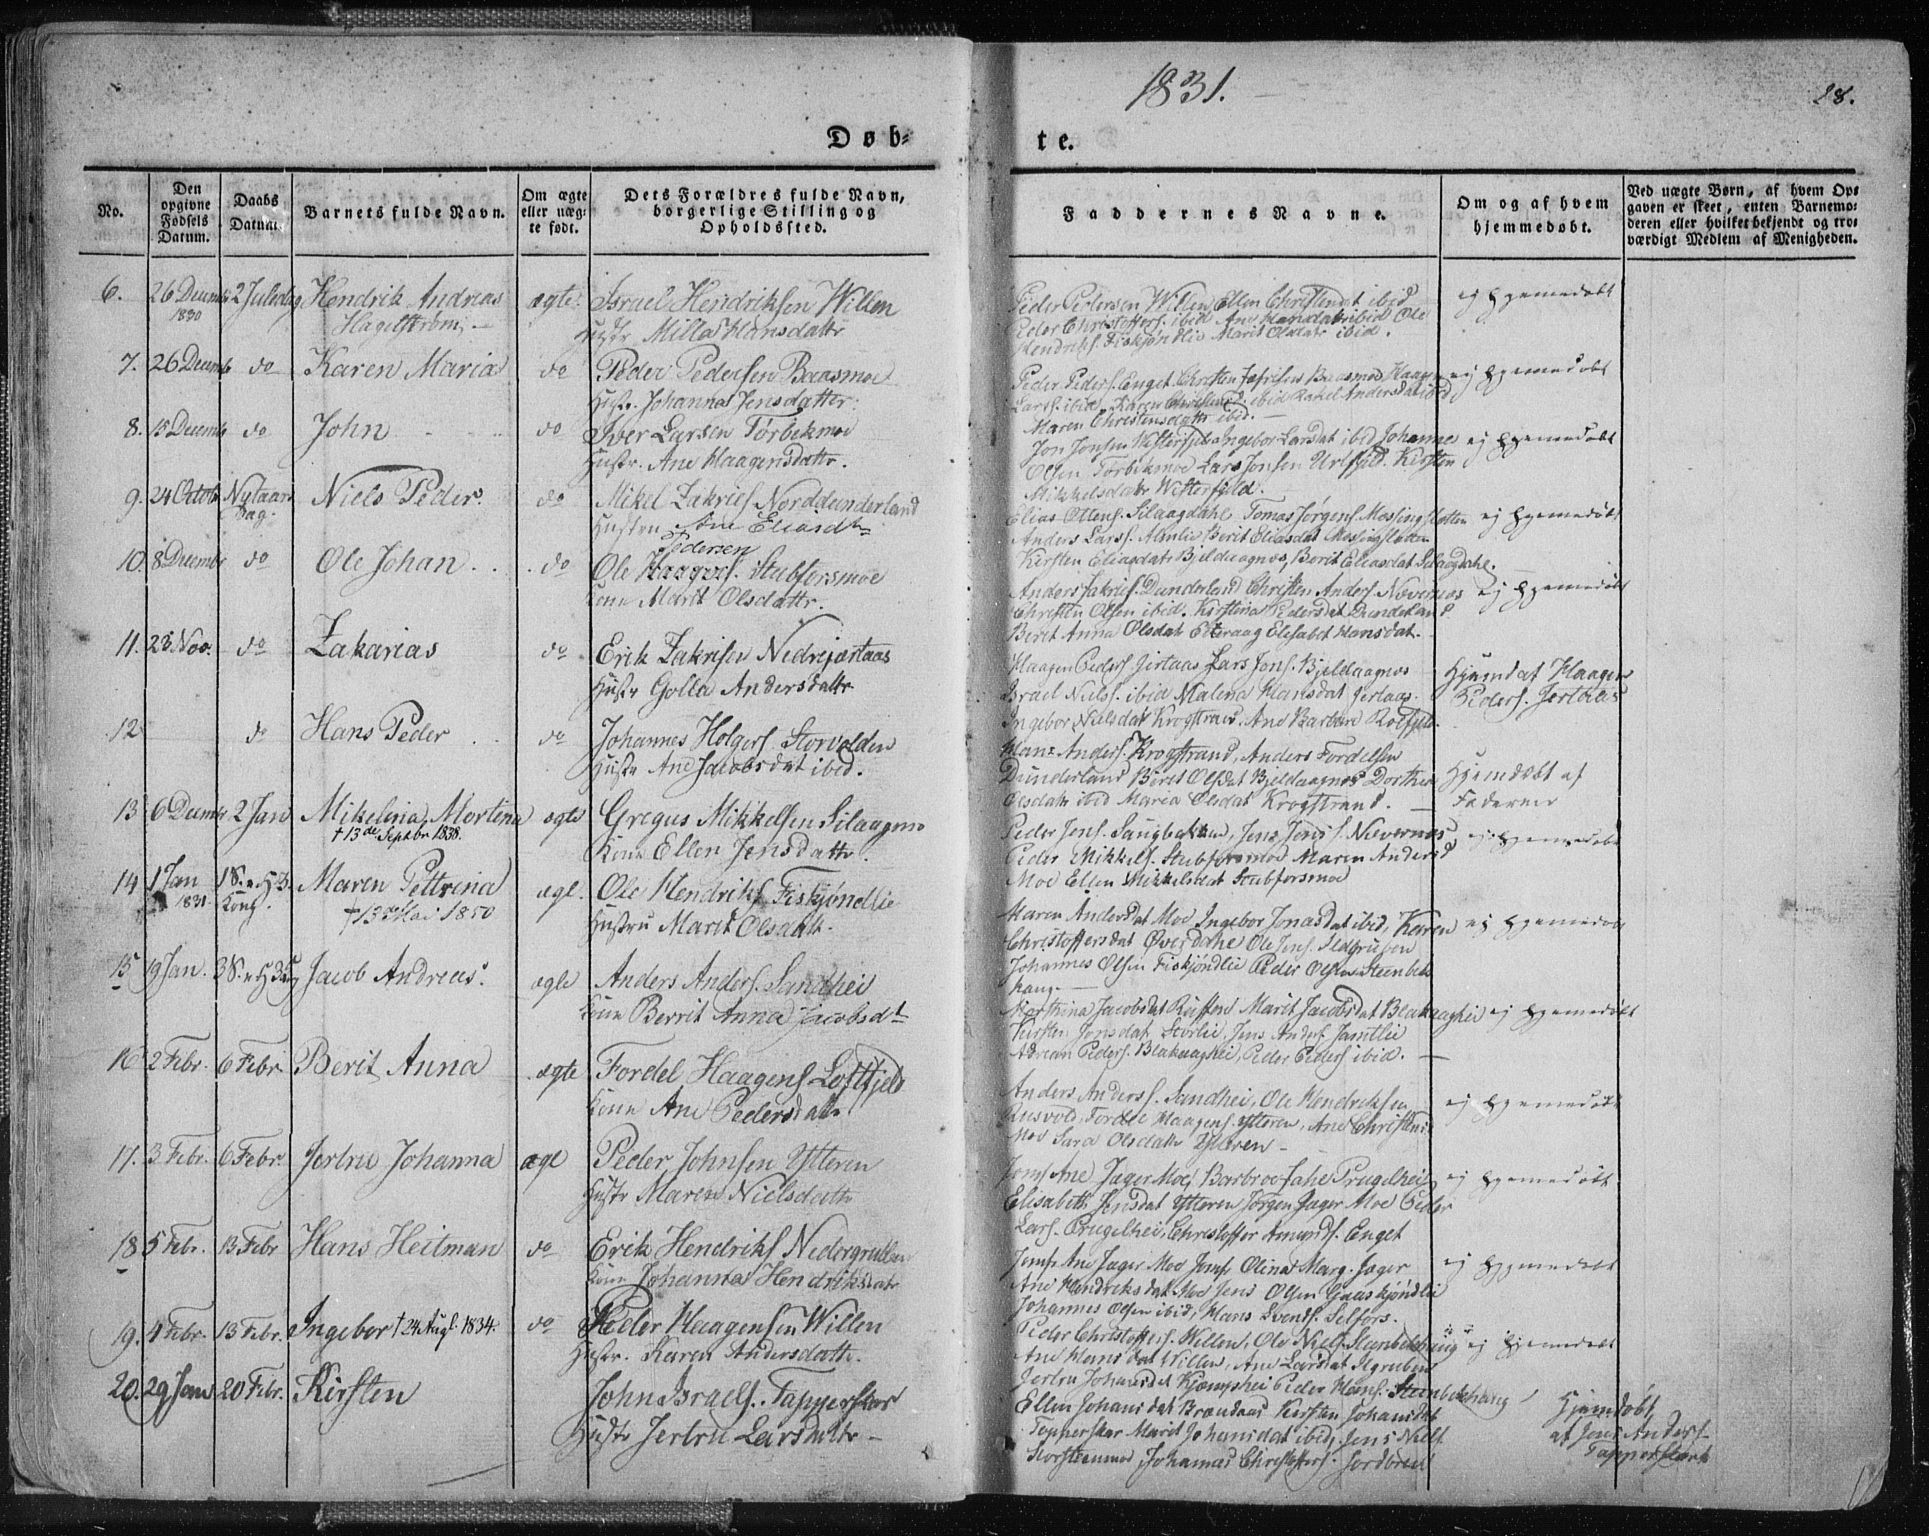 1831.
28.
Døb-
te.
No.
Den opgivne Fødsels Datum.
Daabs Datum.
Barnets fulde Navn.
Om ægte eller uægte født.
Dets Forældres fulde Navn, borgerlige Stilling og Opholdssted.
Faddernes Navne.
Om og af hvem hjemmedøbt.
Ved uægte Børn, af hvem Opgaven er skeet, enten Barnemoderen eller hvilket bekjendt og troværdigt Medlem af Menigheden.
6. 26 Decemb 1830 2 Juledag Hendrik Andreas Hagelstrøm ægte Israel Hendriksen Willen
Hustr Milla Hansdattr
Peder Pedersen Willen Ellen Christensdt ibid
Peder Christoffers. ibid Ane Hansdatr ibid Ole
Hendriks. Fiskjøndlie Marit Olsdatr ibid.
ej hjemmedøbt
7. 26 Decemb do Karen Maria do Peder Pedersen Baasmoe
Hustr. Johanna Jensdatter.
Peder Peders. Enget Christen Baasmoe Haagen
Lars. ibid Karen ibid Rakel Andersdat ibid
Maren Christensdattr ibid.
ej hjemmedøbt
8. 15 Decemb do John do Iver Larsen Tørbekmoe
Hustr. Ane Haagensdattr.
Jon Jonsen Westerfjeld Ingebor Larsdat ibid Johannes
Olsen Tørbekmoe Lars Jonsen Urtfjeld. Kirsten
Mikkelsdatr Westerfjeld.
ej hjemmedøbt
9. 24 Octob Nytaars Dag. Niels Peder do Mikel Zakries Norddunderland
Hustru Ane Eliasdtr
Elias Olens. Silaagdahl Tomas Jørgens. Messingsletten
Anders Lars. Almlie Berit Eliasdat Messingsletten
Kirsten Eliasdatr Bjeldaagnes, Berit Eliasdat Silaagdahl.
ej hjemmedøbt
10. 8 Decembr do Ole Johan do Ole Pedersen Stubforsmoe
Kone Marit Olsdattr.
Anders Zakries. Dunderland Christen Anders. Nævernes
Christen Olsen ibid. Kirstina Pedersdat Dunderland
Berit Anna Olsdat Eiteraag Elisabet Hansdat.
ej hjemmedøbt
11. 23 Nov. do Zakarias do Erik Zakrisen Nedrejærtaas
Hustr Golla Andersdattr
Haagen Peders. Jertaas Lars Jons. Bjeldaagnes
Israel Niels. ibid Malena Hansdat Jertaas
Ingebor Nielsdat Krogstrand, Ane Barbara
Hjemdøbt af Haagen
Peders. Jertaas
12 do Hans Peder do Johannes Holgers. Storvolden
Hustr Ane Jacobsdat ibid.
Hans Anders. Krogstrand, Anders Fordelsen
Dunderland Berit Olsdat Bjeldaagnes Dorthea
Olsdatr ibid Maria Olsdat Krogstrand.
Hjemdøbt af
Faderen
13 6 Decemb 2 Jan Mikelina Mortina ægte Gregus Mikkelsen Silaagmo
† 13de Septbr 1838.
Kone Ellen Jensdattr.
Peder Jens. Langbakken, Jens Jens. Nævernes
Peder Mikkels. Stubforsmoe Maren Andersd
Moe Ellen Mikkelsdat Stubforsmoe
ej hjemmedøbt
14 1 Jan 1831. 1 S. e. H. 3. Kong. Maren Pettrina ægt. Ole Hendriks Fiskjøndlie
† 13de Mai 1850
Hustru Marit Olsdattr.
Maren Andersdat Moe, Ingebor Jonasdat ibid, Karen
Christoffersdat Øverdahl Ole Jens. Ildgruben
Johannes Olsen Fiskjøndlie Peder Olsen Steenbek
haug.
ej hjemmedøbt
15 19 Jan. Jacob Andreas. ægte Anders Anders. Sandhei
Kone Berrit Anna Jacobsdtr
Marthina Jacobsdat Røffen Marit Jacobsdat Blakaaghei
Kirsten Jonsdat Storlie, Jens Anders. Jamtlie
Adrean Peders. Blakaaghei, Peder Peders. ibid.
ej hjemmedøbt
16 2 Febr. 6 Febr. Berit Anna ægte Fordel Haagens. Loftfjeld
Kone Ane Pedersdattr
Anders Anders. Sandhei, Ole Hendriksen
Rusvold, Fordel Haagens. Ytteren, Ane Christens
Moe Sara Olsdatr Ytteren
ej hjemmedøbt
17. 3 Febr. 6 Febr. Jertru Johanna ægt Peder Johnsen Ytteren
Hustr Maren Nielsdattr
Jomf Ane Jager Moe, Barbroe Prugelhei
Elisabeth Jensdat Ytteren Jørgen Jager Moe Peder
Lars. Prugelhei, Christoffer Amunds. Enget
ej hjemmedøbt
18 5 Febr. 13 Febr Hans Heitman do Erik Hendriks Nedergruben
Kone Johanna Hendriksdatr
Jomf Ane Jager Moe Jomf Olina Marg. Jager
Ane Hendriksdat Moe Jens Olsen Gaaskjøndlie
Johannes Olsen ibid, Hans Svends. Selfors.
ej hjemmedøbt
19. 4 Febr. 13 Febr. Ingebor † 24 Augt. 1834. do Peder Haagensen Willen
Hustr. Karen Andersdattr.
Peder Christoffers. Willen, Ole Niels. Steenbekhaug
Ane Hansdat Willen, Ane Larsdat Ilgruben
Jertru Johansdat Kjæmphei Peder Hans. Steenbekhaug
ej hjemmedøbt
20. 29 Jan 20 Febr. Kirsten
John Israels. Tapperskar
Hustr Jertru Larsdattr
Ellen Johansdat Brændaas Kirsten Johansdat
Tapperskar Marit Johansdat ibid, Jens Niels
Storsteenmoe Johannes Christoffers. Jordbroe
Hjemdøbt,
af Jens Anders.
Tapperskar